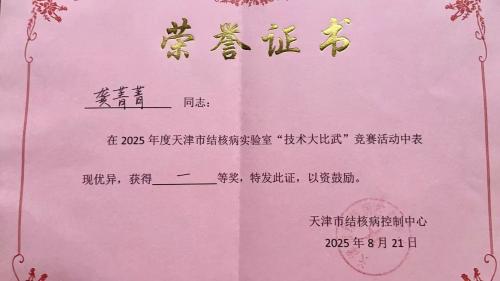 荣誉证书
龚菁菁 同志：
在 2025 年度天津市结核病实验室“技术大比武”竞赛活动中表
现优异，获得 一 等奖，特发此证，以资鼓励。
天津市结核病控制中心
2025 年 8 月 21 日